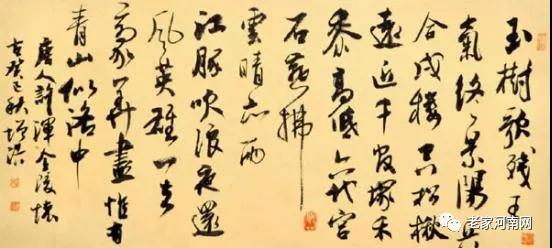 玉樹歌殘王
氣終景陽兵
合戍樓空松楸
遠近千官塚禾
黍高低六代宮
石燕拂
雲晴亦雨
江豚吹浪夜還
風英雄一去
豪華盡惟有
青山似洛中
唐人許渾金陵懷
古癸巳秋
老家河南网